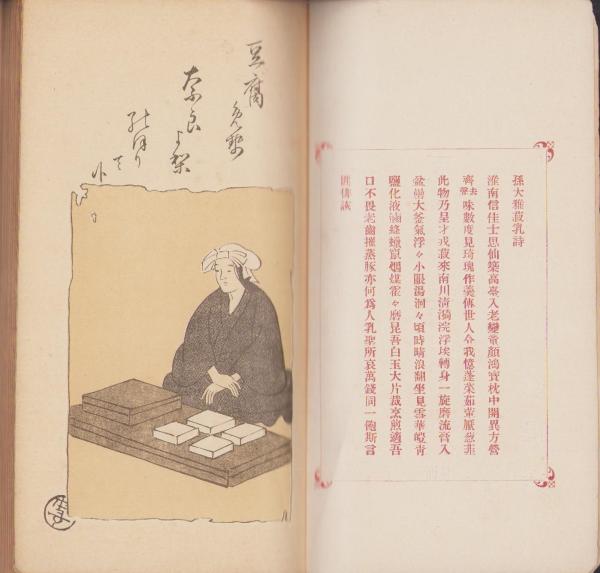 孫大雅菽乳詩
淮南信佳士思仙築高臺入老變童顏鴻寶枕中開異方營
齊去聲味數度見琦瑰作羹傳世人令我憶蓬萊茹葷厭葱韭
此物乃呈才戎菽來南川清漪浣浮埃轉身一旋磨流膏入
盆罍大釜氣浮々小眼湯洄々頃時晴浪翻坐見雪華皚青
鹽化液滷絳蠟竄烟煤霍々磨昆吾白玉大片裁烹煎適吾
口不畏老齒摧蒸豚亦何爲人乳聖所哀萬錢同一飽斯言
匪俳詼
豆腐
奈良